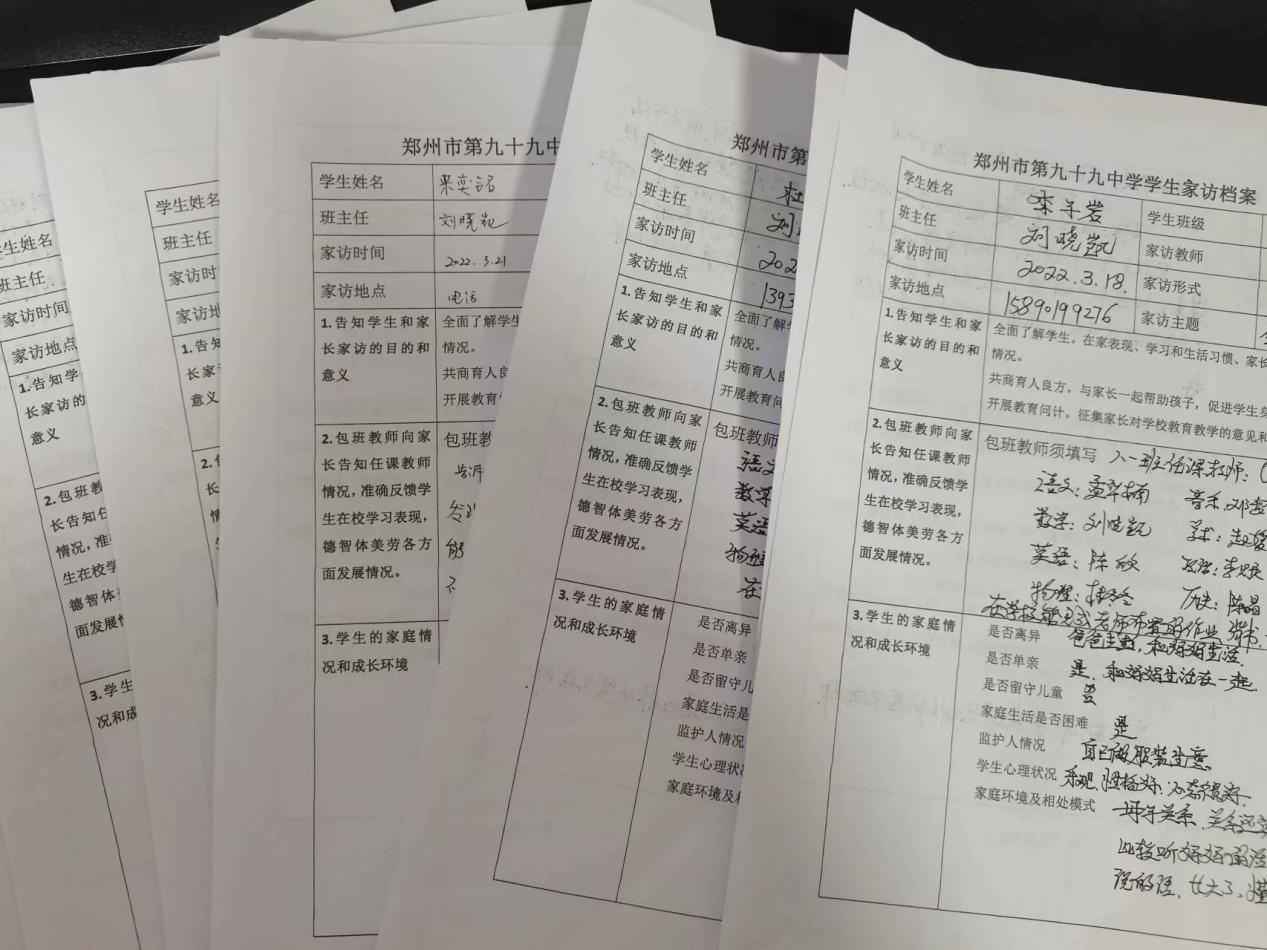 学生姓名
班主任
家访时间
家访地点
1.告知学
长家访的
意义
2.包班教
长告知任
情况,准
生在校学
德智体美
面发展情
3.学生
况和成
学生姓名
班主任
家访时
家访地
1.告知
长家
意义
2.包
长
郑州市第九十九中
学生姓名
班主任 刘晓凯
家访时间 2022.3.21
家访地点 电话
1.告知学生和家
长家访的目的和
意义
全面了解学生
情况。
共商育人
开展教育
2.包班教师向家
长告知任课教师
情况,准确反馈学
生在校学习表现,
德智体美劳各方
面发展情况。
包班教
3.学生的家庭情
况和成长环境
郑州市第
学生姓名 杜
班主任 刘
家访时间 202
家访地点 1393
1.告知学生和家
长家访的目的和
意义
全面了解学
情况。
共商育人良
开展教育问
2.包班教师向家
长告知任课教师
情况,准确反馈学
生在校学习表现,
德智体美劳各方
面发展情况。
包班教师
语文
数学
英语
物理
在
3.学生的家庭情
况和成长环境
是否离异
是否单亲
是否留守儿
家庭生活是
监护人情况
学生心理状
家庭环境及相
郑州市第九十九中学学生家访档案
学生姓名 学生班级
班主任 刘晓凯 家访教师
家访时间 2022.3.18. 家访形式
家访地点 15890199276 家访主题
1.告知学生和家
长家访的目的和
意义
全面了解学生。在家表现、学习和生活习惯、家长
情况。
共商育人良方。与家长一起帮助孩子,促进学生身
开展教育问计。征集家长对学校教育教学的意见和
2.包班教师向家
长告知任课教师
情况,准确反馈学
生在校学习表现,
德智体美劳各方
面发展情况。
包班教师须填写 八一班任课教师:
语文: 音乐:
数学:刘晓凯 美术:
英语:陈欣 政治:
物理: 历史:陈晶
在学校能完成老师布置的作业,
3.学生的家庭情
况和成长环境
是否离异 和妈妈生活.
是否单亲 是,和妈妈生活在一起.
是否留守儿童 否
家庭生活是否困难 是
监护人情况 自己做服装生意.
学生心理状况 乐观,性格好,心态很好.
家庭环境及相处模式 母子关系,关系
比较听妈妈的话
说的话,